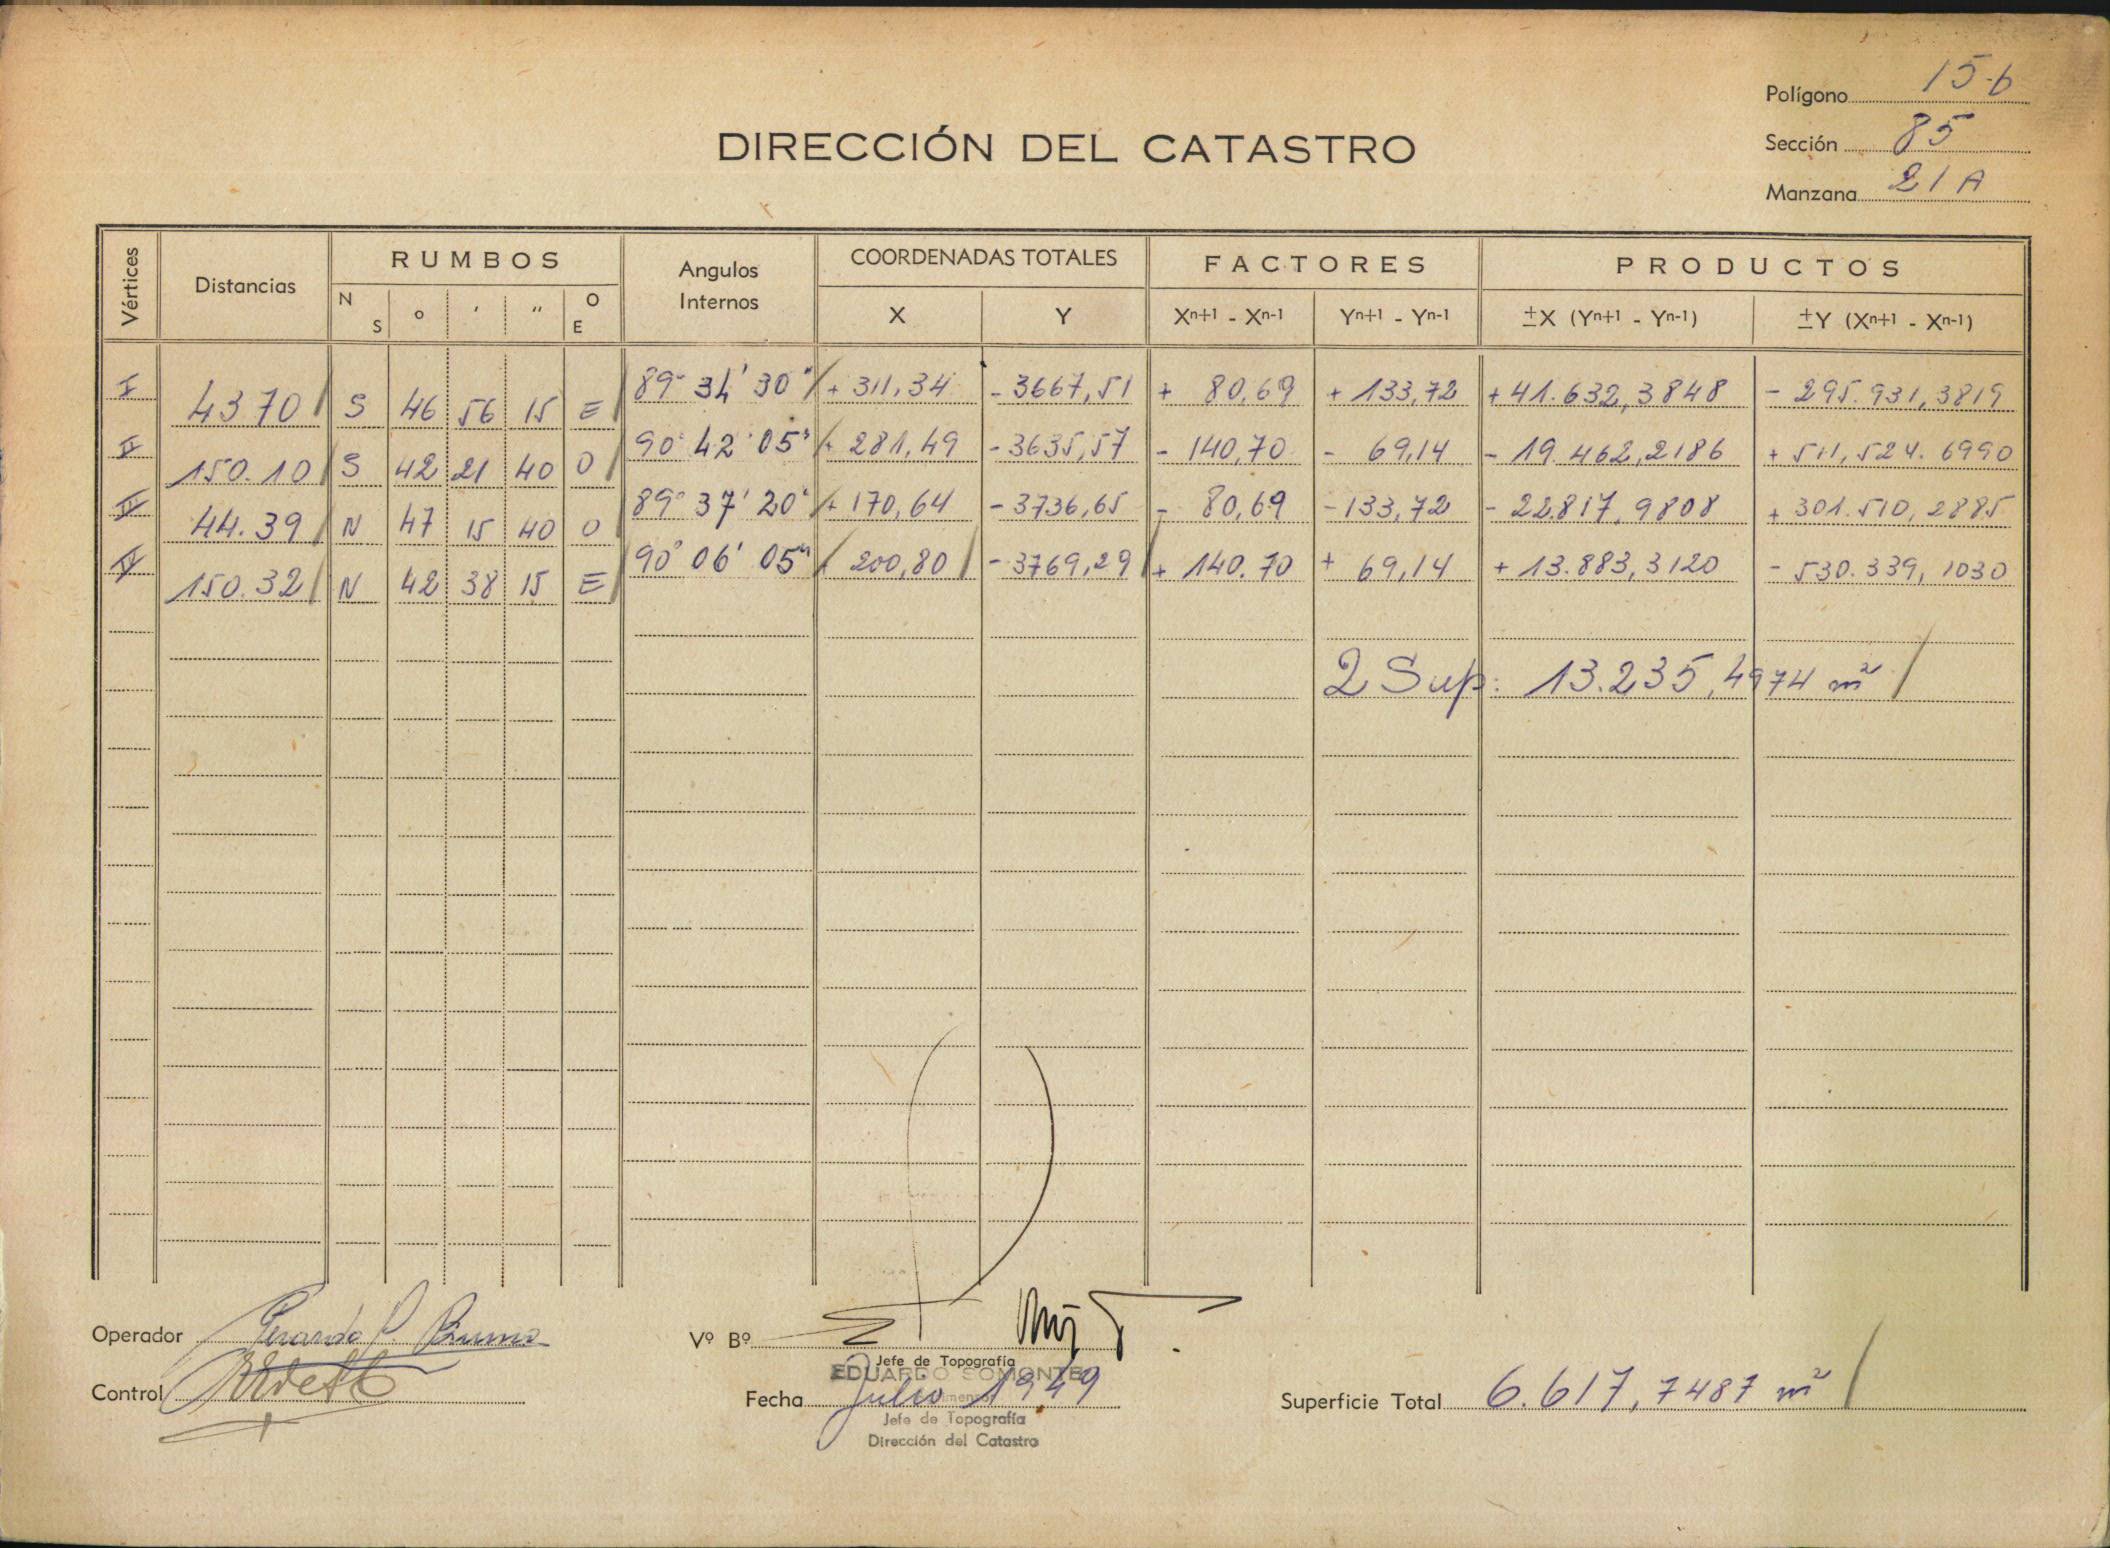 Polígono 15-b
DIRECCIÓN DEL CATASTRO
Sección 85
Manzana 21A
Vértices
Distancias
RUMBOS
N S ° ' " O E
Angulos Internos
COORDENADAS TOTALES
X Y
FACTORES
Xn+1 - Xn-1 Yn+1 - Yn-1
PRODUCTOS
±X (Yn+1 - Yn-1) ±Y (Xn+1 - Xn-1)
I 89° 34' 30" + 311,34 - 3667,51 + 80,69 + 133,72 + 41.632,3848 - 295.931,3819
43 70 S 46 56 15 E
II 90° 42' 05" + 281,49 - 3635,57 - 140,70 - 69,14 - 19.462,2186 + 511,524.6990
150.10 S 42 21 40 O
III 89° 37' 20" + 170,64 - 3736,65 - 80,69 - 133,72 - 22.817,9808 + 301.510,2885
44.39 N 47 15 40 O
IV 90° 06' 05" 200,80 - 3769,29 + 140.70 + 69,14 + 13.883,3120 - 530.339,1030
150.32 N 42 38 15 E
2 Sup: 13.235,4974 m²
Operador Gerardo P.
Vº Bº
Jefe de Topografía
EDUARDO SOMONTE
Control
Fecha Julio 1949
Jefe de Topografía
Dirección del Catastro
Superficie Total 6.617,7487 m²